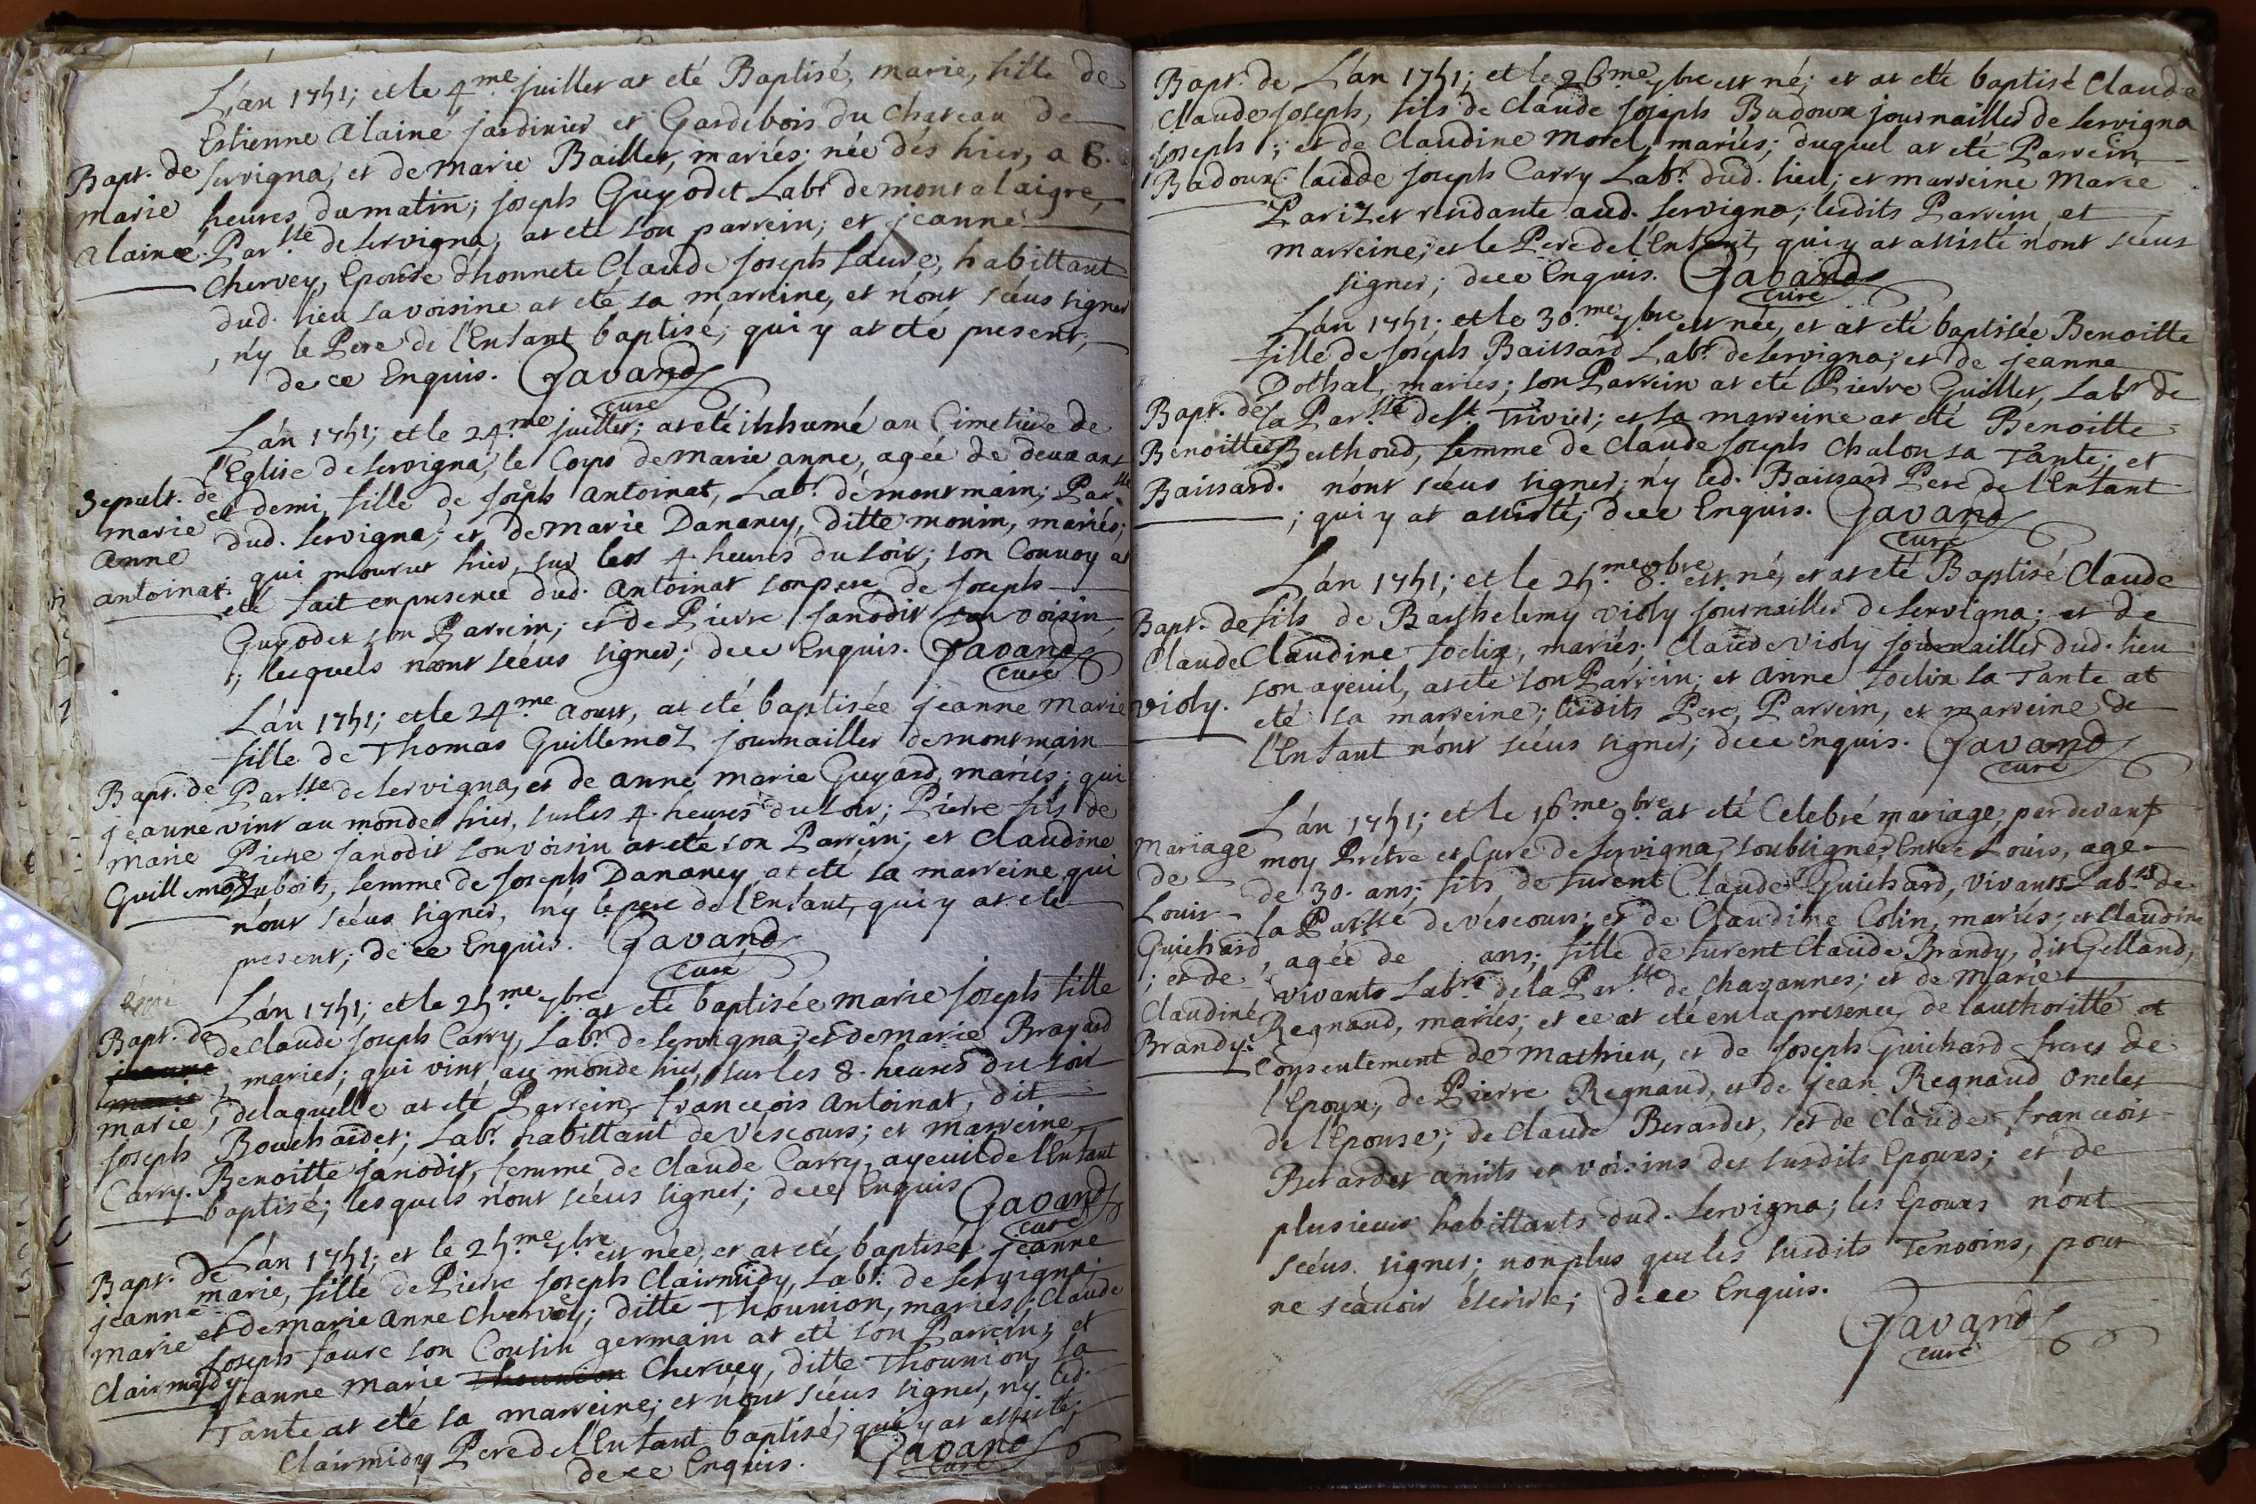 L'án 1751; et le 4.me juillet at eté Baptisé, marie, fille de
Estienne alaine jardinier et Gardebois du chateau de
Bapt. de servigna, et de marie Baillet, mariés; née dés hier, a 8.
marie heures du matin; joseph Guyodet Labr. de montalaigre,
alaine. Par.sse de servigna, at eté son parrein; et jeanne
chervey, Epouse d'honnete Claude joseph faure, habittant
dud. lieu sa voisine at eté sa marreine, et n'ont scéus signer
, n'y le Pere de l'Enfant baptisé, qui y at eté present,
de ce Enquis. Gavand
curé
L'án 1751; et le 24.me juillet; at eté ihhumé au Cimetiere de
l'Eglise de servigna, le Corps de marie anne, agée de deux ans
Sepult. de et demi, fille de joseph antoinat, Labr. de montmain; Par.sse
marie dud. servigna; et de marie Dananey, ditte monin, mariés;
anne qui mourut hier, sur les 4 heures du soir; son Convoy at
antoinat. eté fait en presence dud. antoinat son pere, de joseph
Guyodet son Parrein; et de Pierre janodit son voisin
; lesquels n'ont scéus signer; de ce Enquis. Gavand
curé
L'án 1751; et le 24.me aoust, at eté baptisée jeanne marie
fille de Thomas Guillemoz journaillier de montmain
Bapt. de Par.sse de servigna, et de anne marie Guyard, mariés; qui
jeanne vint au monde hier, sur les 4. heures du soir; Pierre fils de
marie Pierre janodit son voisin at eté son Parrein; et claudine
Guillemoz Dubois, femme de joseph Dananey at eté sa marreine, qui
n'ont scéus signer, n'y le pere de l'Enfant, qui y at eté
present; de ce Enquis. Gavand
curé
L'án 1751; et le 25.me 7.bre at eté baptisée marie joseph fille
Bapt. de de claude joseph Carry, Labr. de servigna; et de marie Brayard
jeanne , mariés; qui vint au monde hier, sur les 8. heures du soir
marie
marie ; de laquelle at eté Parrein francois antoinat, dit
joseph Bouchardet; Labr. habittant de vescours; et marreine,
Carry. Benoitte janodit, femme de claude Carry, ayeuil de l'Enfant
baptisé; lesquels n'ont scéus signer; de ce Enquis Gavand
curé
Bapt. de L'án 1751; et le 25.me 7.bre est née, et at eté baptisée jeanne
jeanne marie, fille de Pierre joseph Clairmidy, Labr. de servigna
marie et de marie anne chervey; ditte Thounion, mariés; Claude
Clairmidy. joseph faure son Cousin germain at eté son Parrein, et
jeanne marie Thounion Chervey, ditte Thounion, sa
Tante at eté sa marreine; et n'ont scéus signer, n'y led.
Clairmidy Pere de l'Enfant baptisé, qui y at assisté;
de ce Enquis. Gavand
curé
Bapt. de L'án 1751; et le 26.me 7bre est né; et at eté baptisé Claude
Claude joseph, fils de claude joseph Badoux journaillier de servigna
joseph ; et de Claudine morel, mariés; duquel at eté Parrein
Badoux. Claude joseph Carry Labr. dud. lieu; et marreine Marie
Pariz et residante aud. servigna; lesdits Parrein, et
marreine, et le Pere de l'Enfant, qui y at assisté n'ont scéus
signer; de ce Enquis. Gavand
curé
L'án 1751; et le 30.me 7.bre est née, et at eté baptisée Benoitte
fille de joseph Baissard Labr. de servigna; et de jeanne
Dothal, mariés; son Parrein at eté Pierre Guillet, Labr. de
Bapt. de la Par.sse de st. Trivier; et sa marreine at eté Benoitte
Benoitte Berthoud, femme de claude joseph chalon sa Tante; et
Baissard. n'ont scéus signer; n'y led. Baissard Pere de l'Enfant
; qui y at assisté; de ce Enquis. Gavand
curé
L'án 1751; et le 25.me 8.bre est né, et at eté Baptisé Claude
Bapt. de fils de Barthelemy violy journaillier de servigna; et de
Claude Claudine soclix, mariés; claude violy journaillier dud. lieu
violy. son ayeuil, at eté son Parrein; et anne soclix sa Tante at
eté sa marreine; lesdits Pere, Parrein, et marreine de
l'Enfant n'ont scéus signer; de ce Enquis. Gavand
curé
L'án 1751; et le 16.me 9.bre at eté Celebré mariage, par devant
mariage moy Prétre et Curé de servigna, soubsigné, Entre Louis, age
de de 30. ans; fils de furent Claude Guichard, vivants Lab.rs de
Louis la Par.sse de vescours; et de Claudine Colin, mariés; et claudine
Guichard , agée de ans; fille de furent Claude Brandy, dit Gelland,
; et de vivants Lab.rs de la Par.sse de chavannes; et de Marie
Claudine Regnaud, mariés; et ce at eté en la presence, de l'authoritté et
Brandy: Consentement de mathieu, et de joseph Guichard freres de
l'Epoux; de Pierre Regnaud, et de jean Regnaud Oncles
de l'Epouse; de claude Berardet, et de claude francois
Berardet amits et voisins des susdits Epoux; et de
plusieurs habittants dud. servigna; les Epoux n'ont
scéus signer; non plus que les susdits Temoins, pour
ne scavoir escrire; de ce Enquis.
Gavand
curé